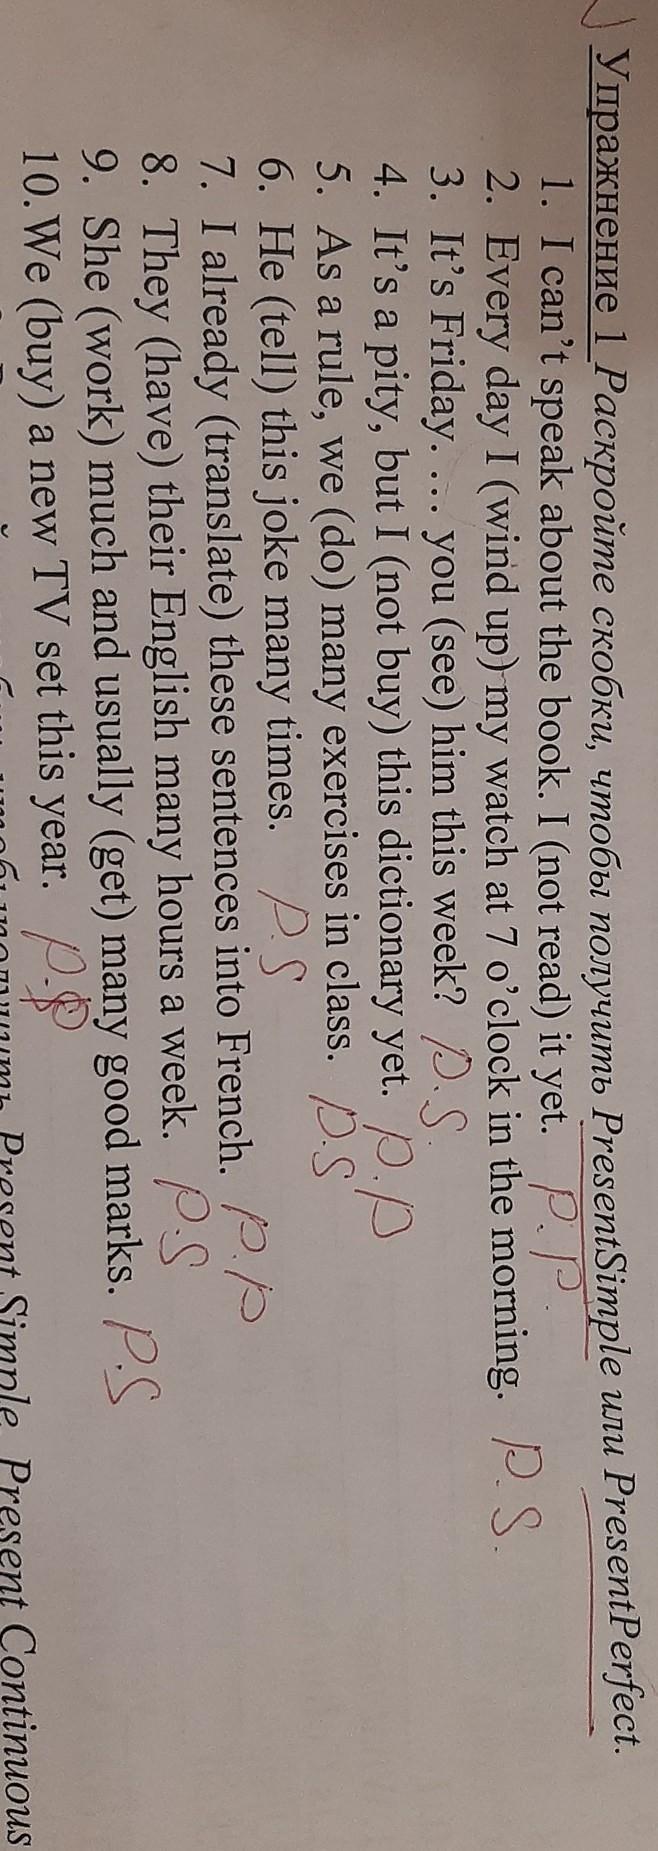 Упражнение 1 Раскройте скобки, чтобы получить PresentSimple или PresentPerfect.
1. I can't speak about the book. I (not read) it yet. P.P.
2. Every day I (wind up) my watch at 7 o'clock in the morning. P.S.
3. It's Friday. ... you (see) him this week? P.S.
4. It's a pity, but I (not buy) this dictionary yet. P.P
5. As a rule, we (do) many exercises in class. P.S
6. He (tell) this joke many times. P.S
7. I already (translate) these sentences into French. P.P
8. They (have) their English many hours a week. P.S
9. She (work) much and usually (get) many good marks. P.S
10. We (buy) a new TV set this year. P.P
Present Simple, Present Continuous